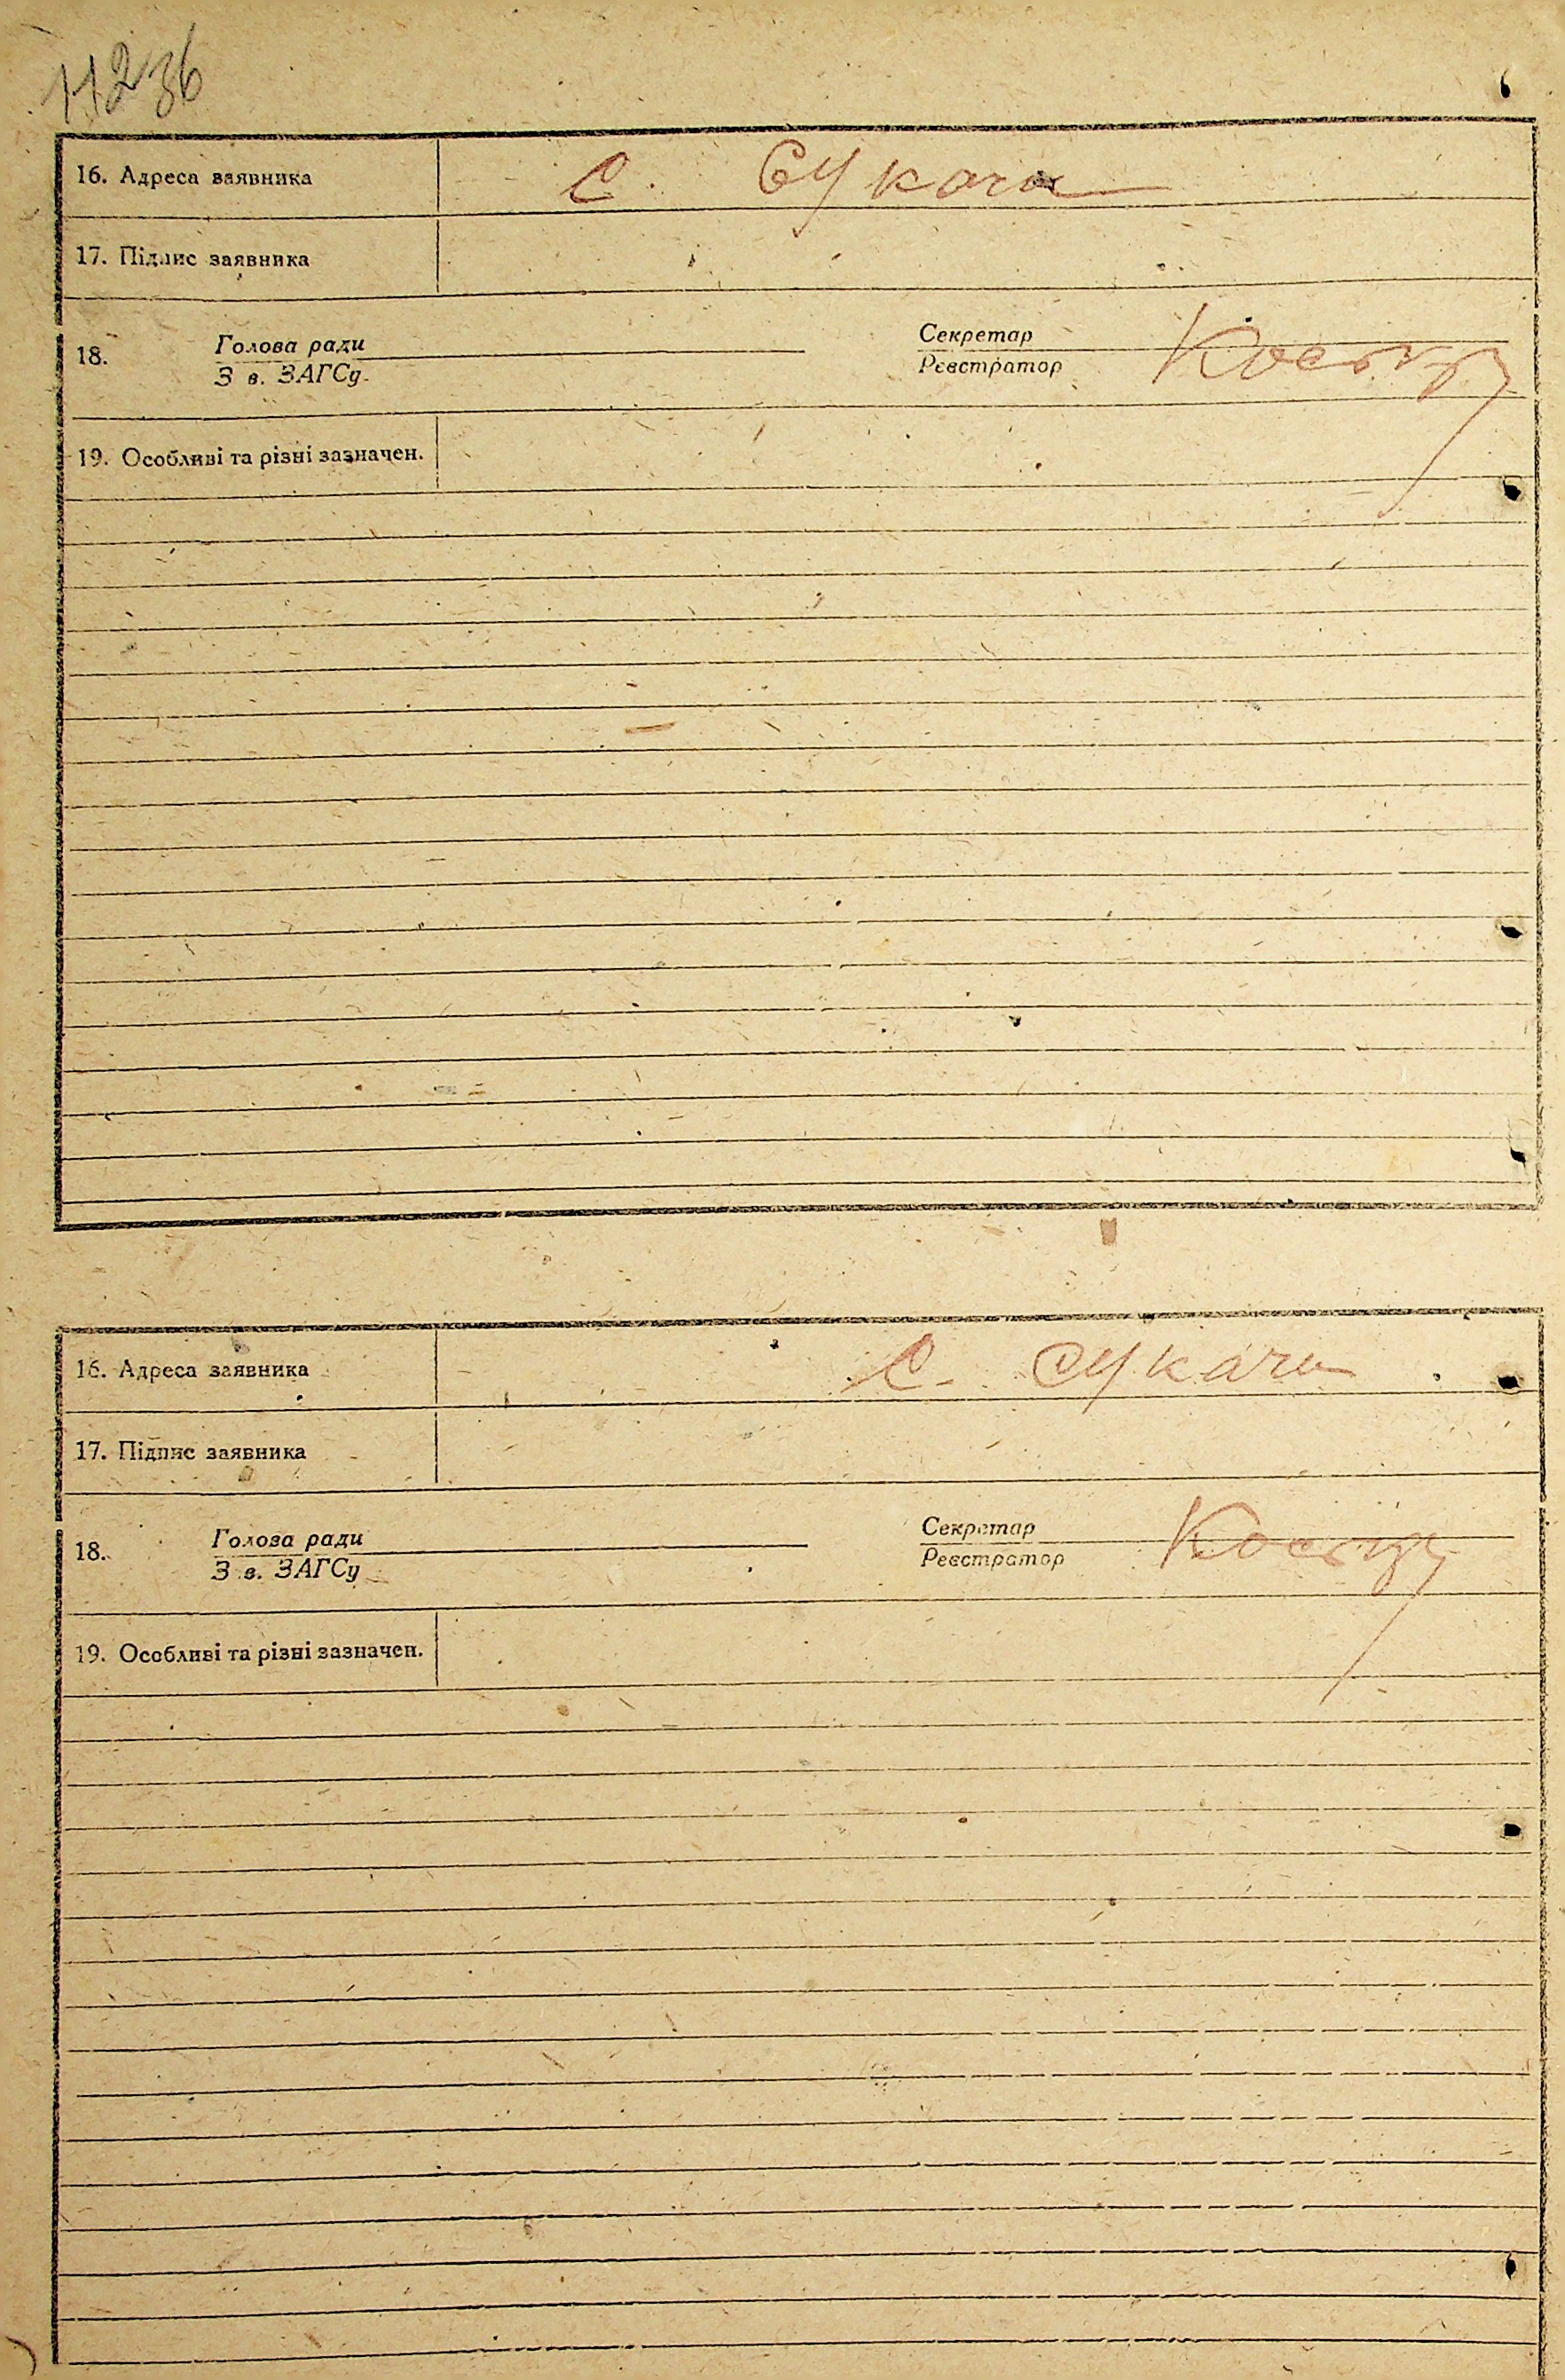 11236
16. Адреса заявника С. Сукачи
17. Підпис заявника
18. Голова ради Секретар
З в. ЗАГСу. Реєстратор
19. Особливі та різні зазначен.
16. Адреса заявника С. Сукачи
17. Підпис заявника
18. Голова ради Секретар
З в. ЗАГСу Реєстратор
19. Особливі та різні зазначен.